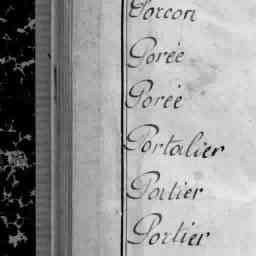 Porcon
Porée
Porée
Portalier
Portier
Portier